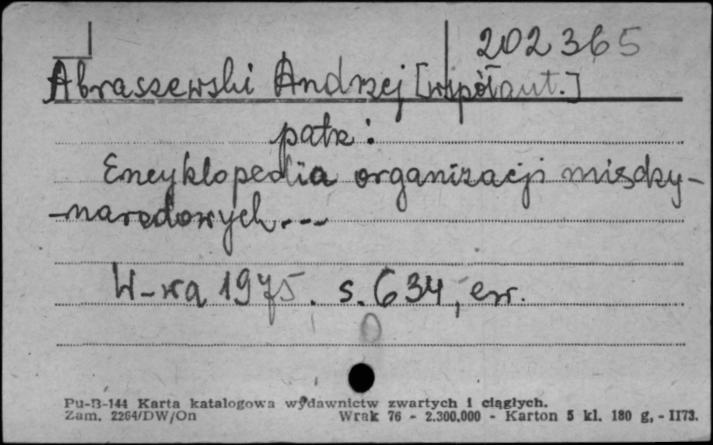 202365
Abraszewski Andrzej [współaut.]
patrz:
Encyklopedia organizacji między-
-narodowych...
W-wa 1975. s. 634, err.
Pu-B-144 Karta katalogowa wydawnictw zwartych i ciągłych.
Zam. 2264/DW/On Wrak 76 - 2.300.000 - Karton 5 kl. 180 g, - II73.